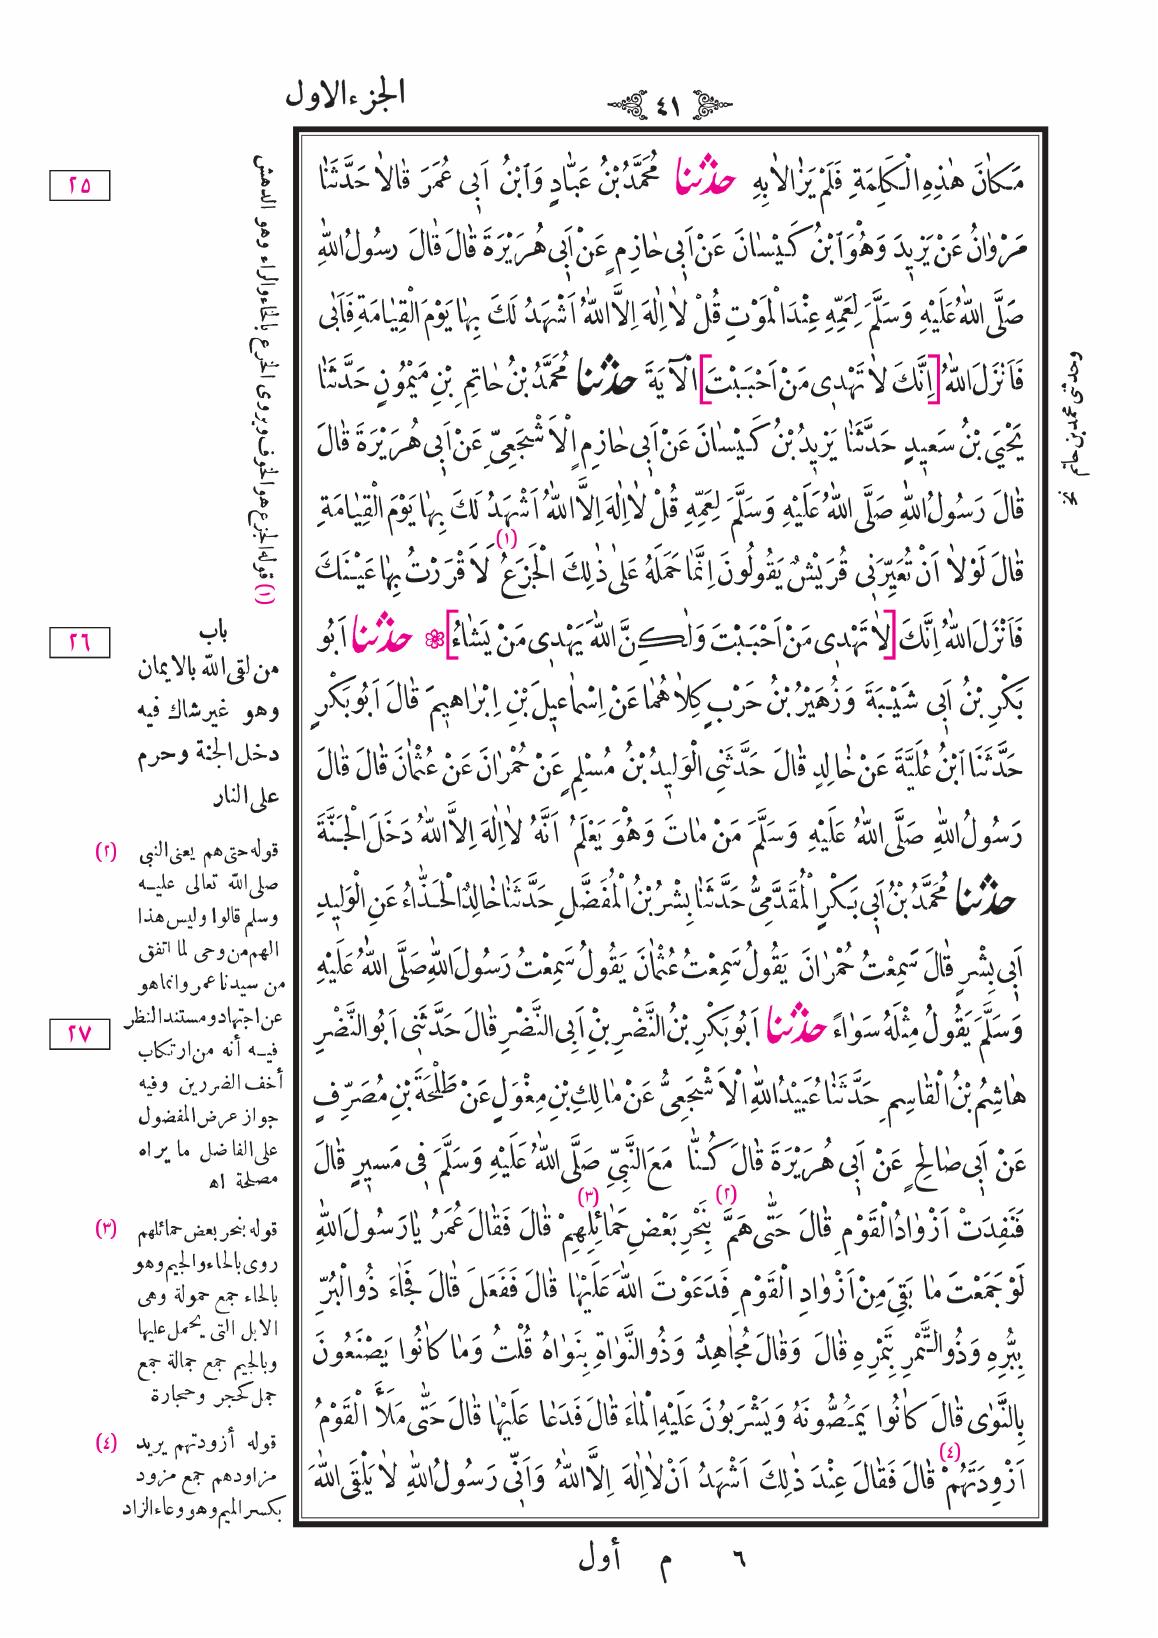 ٤١
الجزء الاول
مَكَانَ هٰذِهِ الْكَلِمَةِ فَلَمْ يَزَالَا بِهِ حدثنا مُحَمَّدُ بْنُ عَبَّادٍ وَابْنُ اَبِى عُمَرَ قَالَا حَدَّثَنَا
مَرْوَانُ عَنْ يَزِيدَ وَهُوَ ابْنُ كَيْسَانَ عَنْ اَبِى حَازِمٍ عَنْ اَبِى هُرَيْرَةَ قَالَ قَالَ رَسُولُ اللهِ
صَلَّى اللهُ عَلَيْهِ وَسَلَّمَ لِعَمِّهِ عِنْدَ الْمَوْتِ قُلْ لَا اِلٰهَ اِلَّا اللهُ اَشْهَدُ لَكَ بِهَا يَوْمَ الْقِيَامَةِ فَاَبٰى
فَاَنْزَلَ اللهُ [اِنَّكَ لَا تَهْدِى مَنْ اَحْبَبْتَ] الْآيَةَ حدثنا مُحَمَّدُ بْنُ حَاتِمِ بْنِ مَيْمُونٍ حَدَّثَنَا
يَحْيَى بْنُ سَعِيدٍ حَدَّثَنَا يَزِيدُ بْنُ كَيْسَانَ عَنْ اَبِى حَازِمٍ الْاَشْجَعِىِّ عَنْ اَبِى هُرَيْرَةَ قَالَ
قَالَ رَسُولُ اللهِ صَلَّى اللهُ عَلَيْهِ وَسَلَّمَ لِعَمِّهِ قُلْ لَا اِلٰهَ اِلَّا اللهُ اَشْهَدُ لَكَ بِهَا يَوْمَ الْقِيَامَةِ
قَالَ لَوْلَا اَنْ تُعَيِّرَنِى قُرَيْشٌ يَقُولُونَ اِنَّمَا حَمَلَهُ عَلٰى ذٰلِكَ الْجَزَعُ (١) لَاَقْرَرْتُ بِهَا عَيْنَكَ
فَاَنْزَلَ اللهُ اِنَّكَ [لَا تَهْدِى مَنْ اَحْبَبْتَ وَلٰكِنَّ اللهَ يَهْدِى مَنْ يَشَاءُ] ۞ حدثنا اَبُو
بَكْرِ بْنُ اَبِى شَيْبَةَ وَزُهَيْرُ بْنُ حَرْبٍ كِلَاهُمَا عَنْ اِسْمَاعِيلَ بْنِ اِبْرَاهِيمَ قَالَ اَبُو بَكْرٍ
حَدَّثَنَا ابْنُ عُلَيَّةَ عَنْ خَالِدٍ قَالَ حَدَّثَنِى الْوَلِيدُ بْنُ مُسْلِمٍ عَنْ حُمْرَانَ عَنْ عُثْمَانَ قَالَ قَالَ
رَسُولُ اللهِ صَلَّى اللهُ عَلَيْهِ وَسَلَّمَ مَنْ مَاتَ وَهُوَ يَعْلَمُ اَنَّهُ لَا اِلٰهَ اِلَّا اللهُ دَخَلَ الْجَنَّةَ
حدثنا مُحَمَّدُ بْنُ اَبِى بَكْرٍ الْمُقَدَّمِىُّ حَدَّثَنَا بِشْرُ بْنُ الْمُفَضَّلِ حَدَّثَنَا خَالِدٌ الْحَذَّاءُ عَنِ الْوَلِيدِ
اَبِى بِشْرٍ قَالَ سَمِعْتُ حُمْرَانَ يَقُولُ سَمِعْتُ عُثْمَانَ يَقُولُ سَمِعْتُ رَسُولَ اللهِ صَلَّى اللهُ عَلَيْهِ
وَسَلَّمَ يَقُولُ مِثْلَهُ سَوَاءً حدثنا اَبُو بَكْرِ بْنُ النَّضْرِ بْنِ اَبِى النَّضْرِ قَالَ حَدَّثَنِى اَبُو النَّضْرِ
هَاشِمُ بْنُ الْقَاسِمِ حَدَّثَنَا عُبَيْدُ اللهِ الْاَشْجَعِىُّ عَنْ مَالِكِ بْنِ مِغْوَلٍ عَنْ طَلْحَةَ بْنِ مُصَرِّفٍ
عَنْ اَبِى صَالِحٍ عَنْ اَبِى هُرَيْرَةَ قَالَ كُنَّا مَعَ النَّبِىِّ صَلَّى اللهُ عَلَيْهِ وَسَلَّمَ فِى مَسِيرٍ قَالَ
فَنَفِدَتْ اَزْوَادُ الْقَوْمِ قَالَ حَتّٰى هَمَّ (٢) بِنَحْرِ بَعْضِ حَمَائِلِهِمْ (٣) قَالَ فَقَالَ عُمَرُ يَا رَسُولَ اللهِ
لَوْ جَمَعْتَ مَا بَقِىَ مِنْ اَزْوَادِ الْقَوْمِ فَدَعَوْتَ اللهَ عَلَيْهَا قَالَ فَفَعَلَ قَالَ فَجَاءَ ذُو الْبُرِّ
بِبُرِّهِ وَذُو التَّمْرِ بِتَمْرِهِ قَالَ وَقَالَ مُجَاهِدٌ وَذُو النَّوَاةِ بِنَوَاهُ قُلْتُ وَمَا كَانُوا يَصْنَعُونَ
بِالنَّوٰى قَالَ كَانُوا يَمَصُّونَهُ وَيَشْرَبُونَ عَلَيْهِ الْمَاءَ قَالَ فَدَعَا عَلَيْهَا قَالَ حَتّٰى مَلَأَ الْقَوْمُ
اَزْوِدَتَهُمْ (٤) قَالَ فَقَالَ عِنْدَ ذٰلِكَ اَشْهَدُ اَنْ لَا اِلٰهَ اِلَّا اللهُ وَاَنِّى رَسُولُ اللهِ لَا يَلْقَى اللهَ
وحدثنى محمد بن حاتم نخ
٢٥
(١) قوله الجزع هو الخوف ويروى الخرع بالخاء والراء وهو الدهش
٢٦
باب
من لقى الله بالايمان
وهو غير شاك فيه
دخل الجنة وحرم
على النار
(٢) قوله حتى هم يعنى النبى
صلى الله تعالى عليه
وسلم قالوا وليس هذا
الهم من وحى لما اتفق
من سيدنا عمر وانما هو
عن اجتهاد ومستند النظر
فيه أنه من ارتكاب
أخف الضررين وفيه
جواز عرض المفضول
على الفاضل ما يراه
مصلحة اه
٢٧
(٣) قوله بنحر بعض حمائلهم
روى بالحاء والجيم وهو
بالحاء جمع حمولة وهى
الابل التى يحمل عليها
وبالجيم جمع جمالة جمع
جمل كحجر وحجارة
(٤) قوله أزودتهم يريد
مزاودهم جمع مزود
بكسر الميم وهو وعاء الزاد
٦ م أول